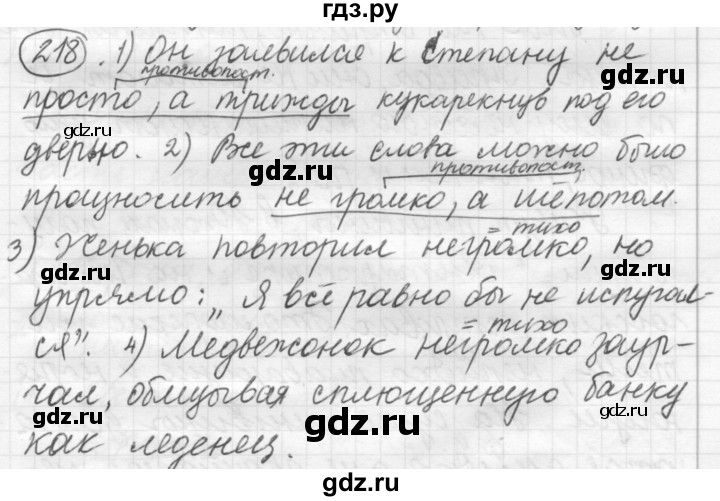 гдз.ру
218. 1) Он заявился к Степану не
противопост.
просто, а трижды кукарекнув под его
дверью. 2) Все эти слова можно было
противопост.
произносить не громко, а шёпотом.
= тихо
3) Женька повторил негромко, но
упрямо: „Я всё равно бы не испугал-
= тихо
ся". 4) Медвежонок негромко заур-
чал, облизывая сплющенную банку
как леденец.
gdz.ru gdz.ru gdz.ru
gdz.ru gdz.ru
gdz.ru gdz.ru gdz.ru
gdz.ru gdz.ru
gdz.ru gdz.ru